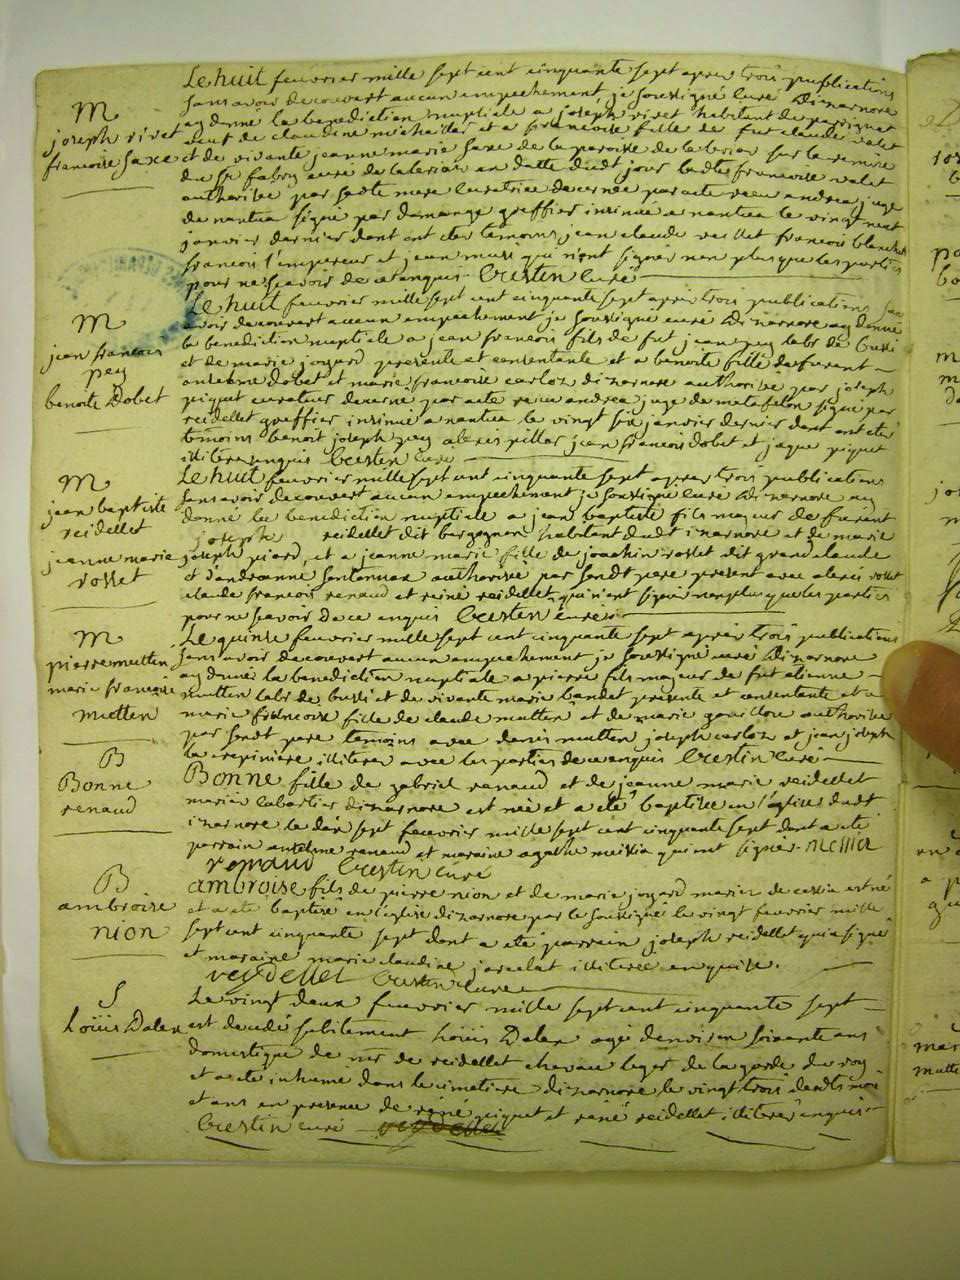 M
joseph rivet
françoise saxe
Le huit feuvrier mille sept cent cinquante sept apres trois publications
sans avoir decouvert aucun empechement, je soussigné curé Dizarnore
ay donné la benediction nuptiale a joseph rivet habitant de
veuf de claudine michailler et a francoise fille de fut claude valet
et de vivante jeanne marie saxe de la paroisse de la sur la remise
du Sr fabry curé de en datte dudt jour ladte francoise valet
authorisée par sadte mere curatrice decernée par acte receu andrea juge
de nantua signé par damange greffier insinué a nantua le vingt neuf
janvier dernier dont ont eté temoins jean claude francois blanchet
francois l'empereur et jean qui n'ont signer non plus que les parties
pour ne scavoir de ce enquis. Crestin curé
M
jean francois
pey
benoite Dobet
Le huit feuvrier mille sept cent cinquante sept apres trois publications san
avoir decouvert aucun empechement je soussigné curé Dizarnore ay donné
la benediction nuptiale a jean francois fils de fut jean pey labr de bussi
et de marie jozard presente et consentante et a benoite fille de furent
anselme dobet et marie francoise carloz dizarnore authorisée par joseph
piquet curateur decerné par acte receu andrea juge de matafelon signé par
reidellet greffier insinué a nantua le vingt six janvier dernier dont ont eté
temoins benoit joseph pey alexis pillar jean francois dobet et jaque piquet
illiteré enquis Crestin curé
M
jean baptiste
reidellet
jeanne marie
rosset
Le huit feuvrier mille sept cent cinquante sept apres trois publications
sans avoir decouvert aucun empechement je soussigné curé Dizarnore ay
donné la benediction nuptiale a jean baptiste fils majeur de furent
joseph reidellet dit bargognon habitant dudt izarnore et de marie
joseph piard, et a jeanne marie fille de joachin rosset dit grand claude
et d'andreanne authorisée par sondt pere present avec alexis rosset
claude francois renaud et reiné reidellet, qui n'ont signé non plus que les parties
pour ne scavoir de ce enquis Crestin curé
M
pierre mutten
marie francoise
mutten
Le quinse feuvrier mille sept cent cinquante sept apres trois publications
sans avoir decouvert aucun empechement je soussigné curé Dizarnore
ay donné la benediction nuptiale a pierre fils majeur de fut etienne
mutten labr de bussi et de vivante marie bandet presente et consentante et a
marie francoise fille de claude mutten et de marie authorisée
par sondt pere temoins avec denis mutten joseph carloz et jean joseph
la crepiniere illiteré avec les parties de ce enquis Crestin curé
B
Bonne
renaud
Bonne fille de gabriel renaud et de jeanne marie reidellet
mariés dizarnore est née et a eté baptisée en l'église dudt
izarnore le dix sept feuvrier mille sept cent cinquante sept dont a eté
parrain anthelme renaud et maraine agathe meissia qui ont signés. Messia
renaud Crestin curé
B
ambroise
nion
ambroise fils de pierre nion et de marie jozard mariez de est né
et a eté baptisé en l'église dizarnore par le soussigné le vingt feuvrier mille
sept cent cinquante sept dont a eté parrain joseph reidellet qui a signé
et maraine marie claudine jarcelat illiterée enquise.
reydellet Crestin curé
S
Loüis Dalex
Le vingt deux feuvrier mille sept cent cinquante sept
est decedé subitement Loüis Dalex agé denviron soixante ans
domestique de mr de reidellet chevau leger de la garde du roy
et a eté inhumé dans le cimetiere dizarnore le vingt trois desdts mois
et ans en presence de réné piquet et réné reidellet illiteré enquis
Crestin curé